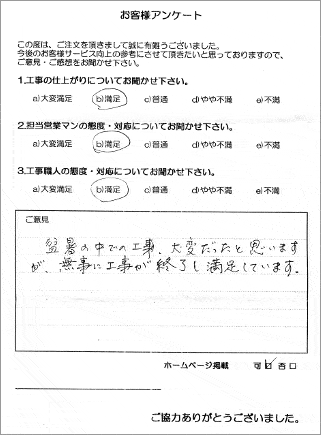 お客様アンケート
この度は、ご注文を頂きまして誠に有難うございました。
今後のお客様サービス向上の参考にさせて頂きたいと思っておりますので、
ご意見・ご感想をお聞かせ下さい。
1.工事の仕上がりについてお聞かせ下さい。
a)大変満足 b)満足 c)普通 d)やや不満 e)不満
2.担当営業マンの態度・対応についてお聞かせ下さい。
a)大変満足 b)満足 c)普通 d)やや不満 e)不満
3.工事職人の態度・対応についてお聞かせ下さい。
a)大変満足 b)満足 c)普通 d)やや不満 e)不満
ご意見
暑の中での工事、大変だったと思います
が、無事に工事が終了し満足しています。
ホームページ掲載 可 否
ご協力ありがとうございました。